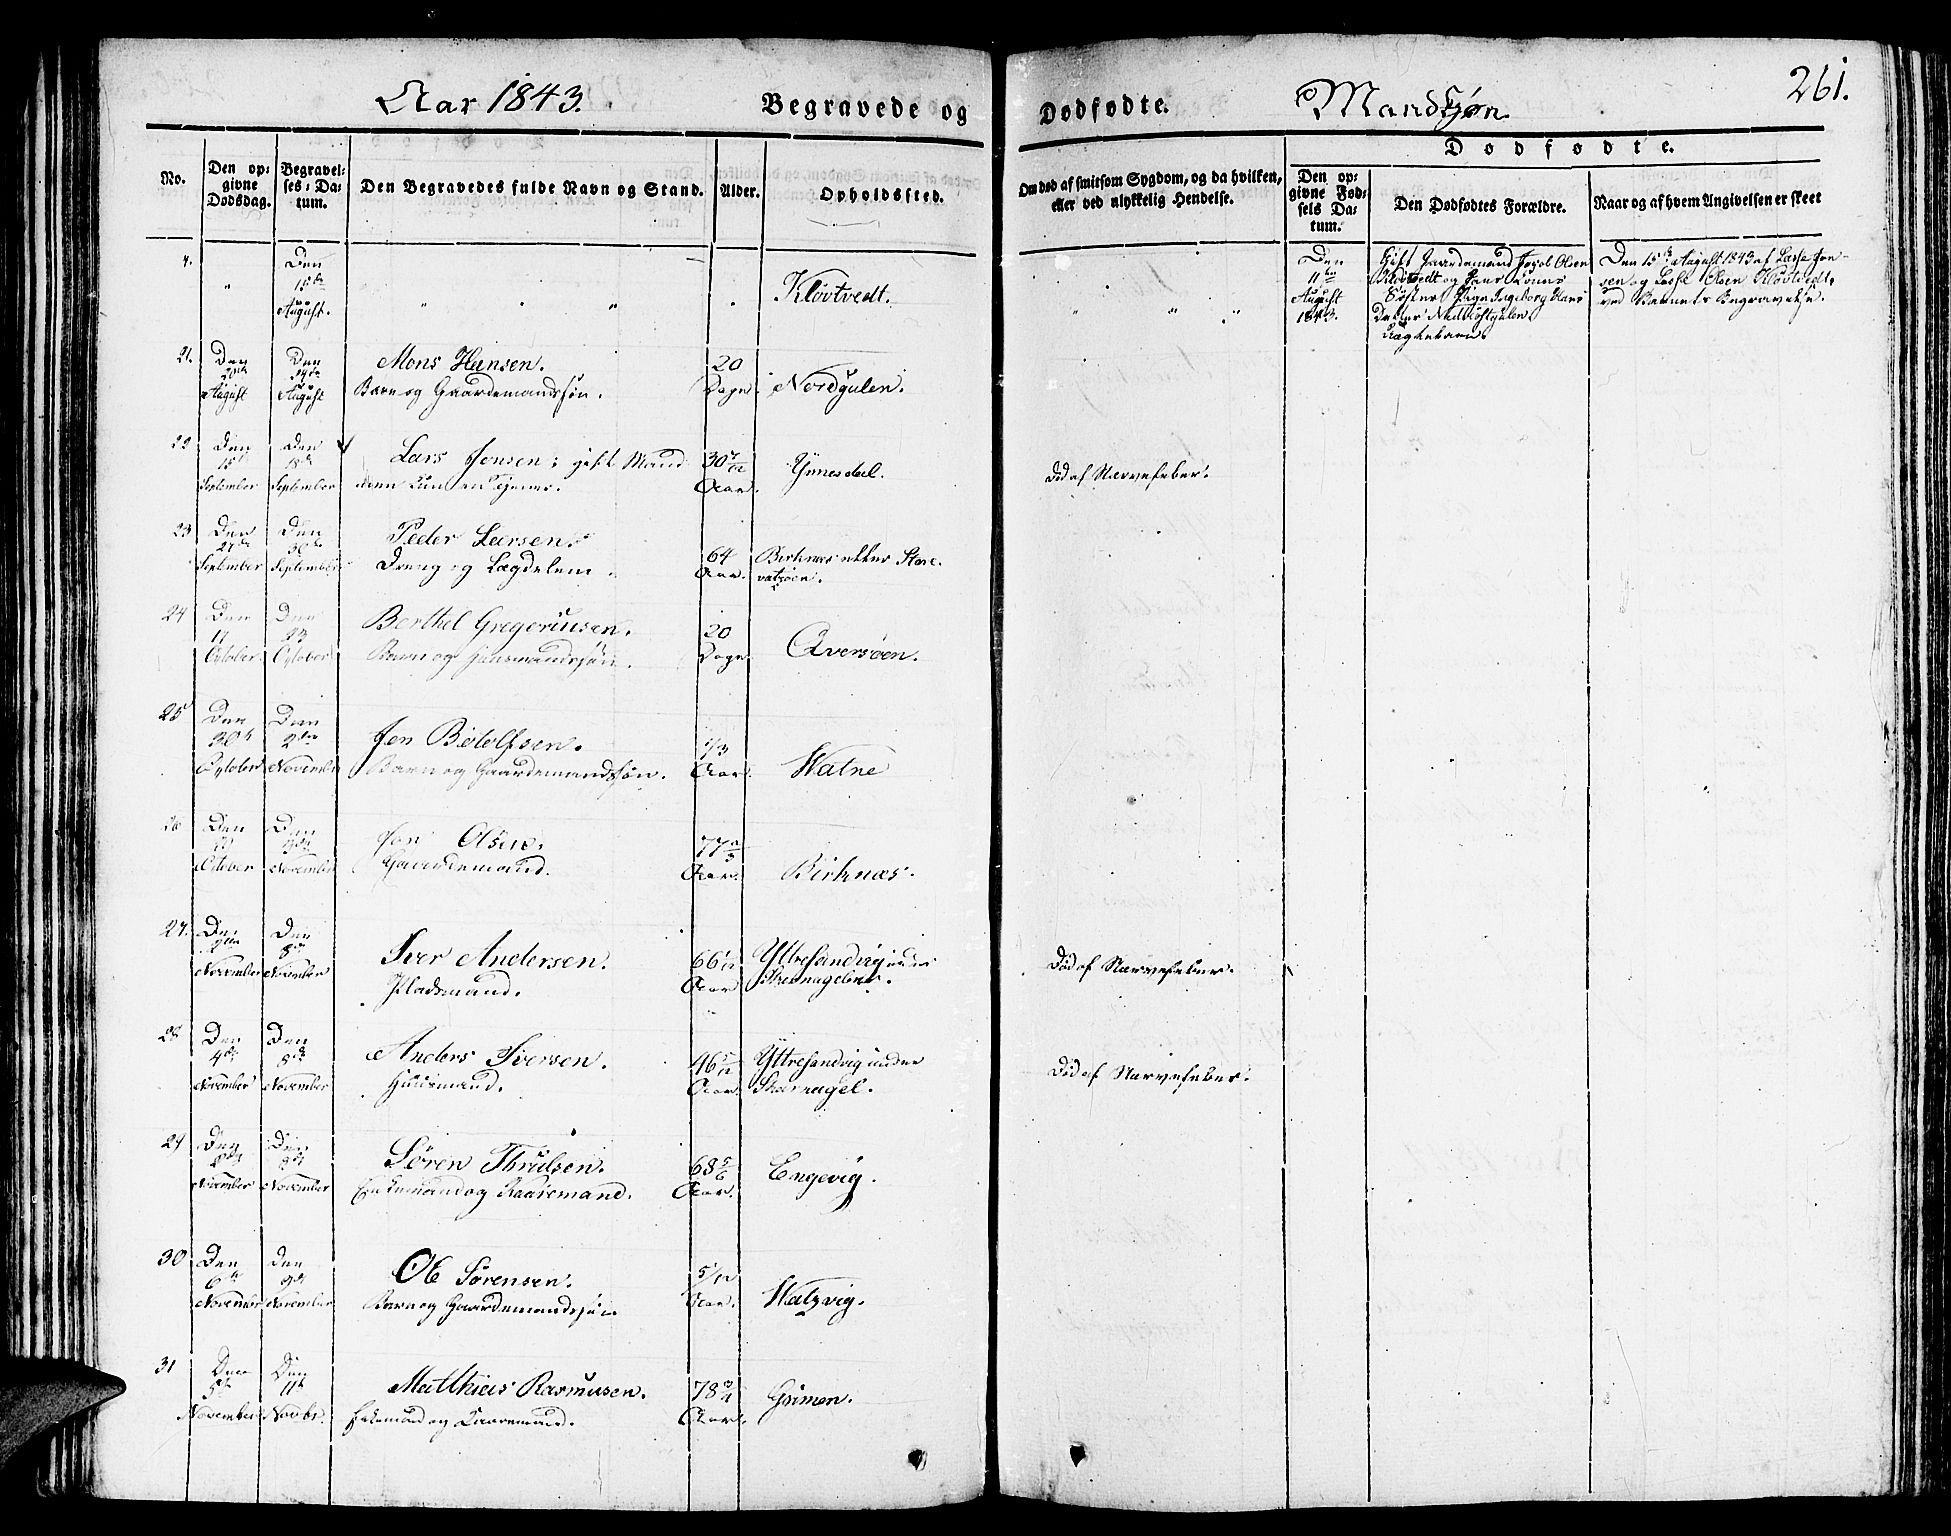 Aar 1843.
Begravede og
Dødfødte.
Mandkjøn
261.
No.
Den op-
givne
Dødsdag.
Begravel-
ses-Da-
tum.
Den Begravedes fulde Navn og Stand.
Alder.
Opholdssted.
Om død af smitsom Sygdom, og da hvilken,
eller ved ulykkelig Hendelse.
Dødfødte.
Den op-
givne Fød-
sels Da-
tum.
Den Dødfødtes Forældre.
Naar og af hvem Angivelsen er skeet
4. " Den
15de
August. " " " Kløvtvedt.
" " "
Den
11te
August
1843.
Gift Gaardemand Jacob Olsen
Kløvtvedt og hans Kones
Søster Pige Ingeborg Hans
Datter Midtøstgulen.
Den 15de August 1843 af Lasse Jon-
sen og Lasse Olsen Kløvtvedt,
ved Barnets Begravelse.
21. Den
20de
August
Den
24de
August
Mons Hansen.
Barn og Gaardemandssøn.
20
Dage
Nordgulen.
22 Den
15de
September
Den
18de
September
Lars Jonsen; gift Mand
Ynnesdal.
Død af Nervefeber.
23 Den
27de
September
Den
30de
September
Peder Larsen.
Dreng og Lægdelem.
64
Aar.
Birknæs
24 Den
17
October
Den
23
October
Berthel Gregeriusen.
Barn og Huusmandssøn.
20
Dage
Aversøen.
25 Den
30te
October
Den
2den
November
Jon Bótolfsen.
Barn og Gaardemandssøn.
1/3
Aar.
Watne
26 Den
October
Den
November
Jon Olsen.
Gaardemand.
77 2/3
Aar.
Birknæs.
27. Den
2den
November
Den
8de
November
Iver Andersen.
Pladsmand.
66 1/12
Aar
Yttresandvig under
Død af Nervefeber.
28 Den
4de
November
Den
8de
November
Anders Iversen.
Huusmand.
46 5/12
Aar.
Yttresandvig under
Skarnagel.
Død af Nervefeber.
29 Den
November
Den
November
Sören Thrulsen.
Enkemand og Kaaremand.
68 5/6
Aar.
Engevig.
30 Den
6te
November
Den
9de
November
Ole Sörensen.
Barn og Gaardemandssøn
5/12
Aar.
Watzvig.
31 Den
5te
November
Den
11te
Novbr.
Mathias Rasmusen.
Enkemand og Kaaremand.
78 3/4
Aar.
Grimen.